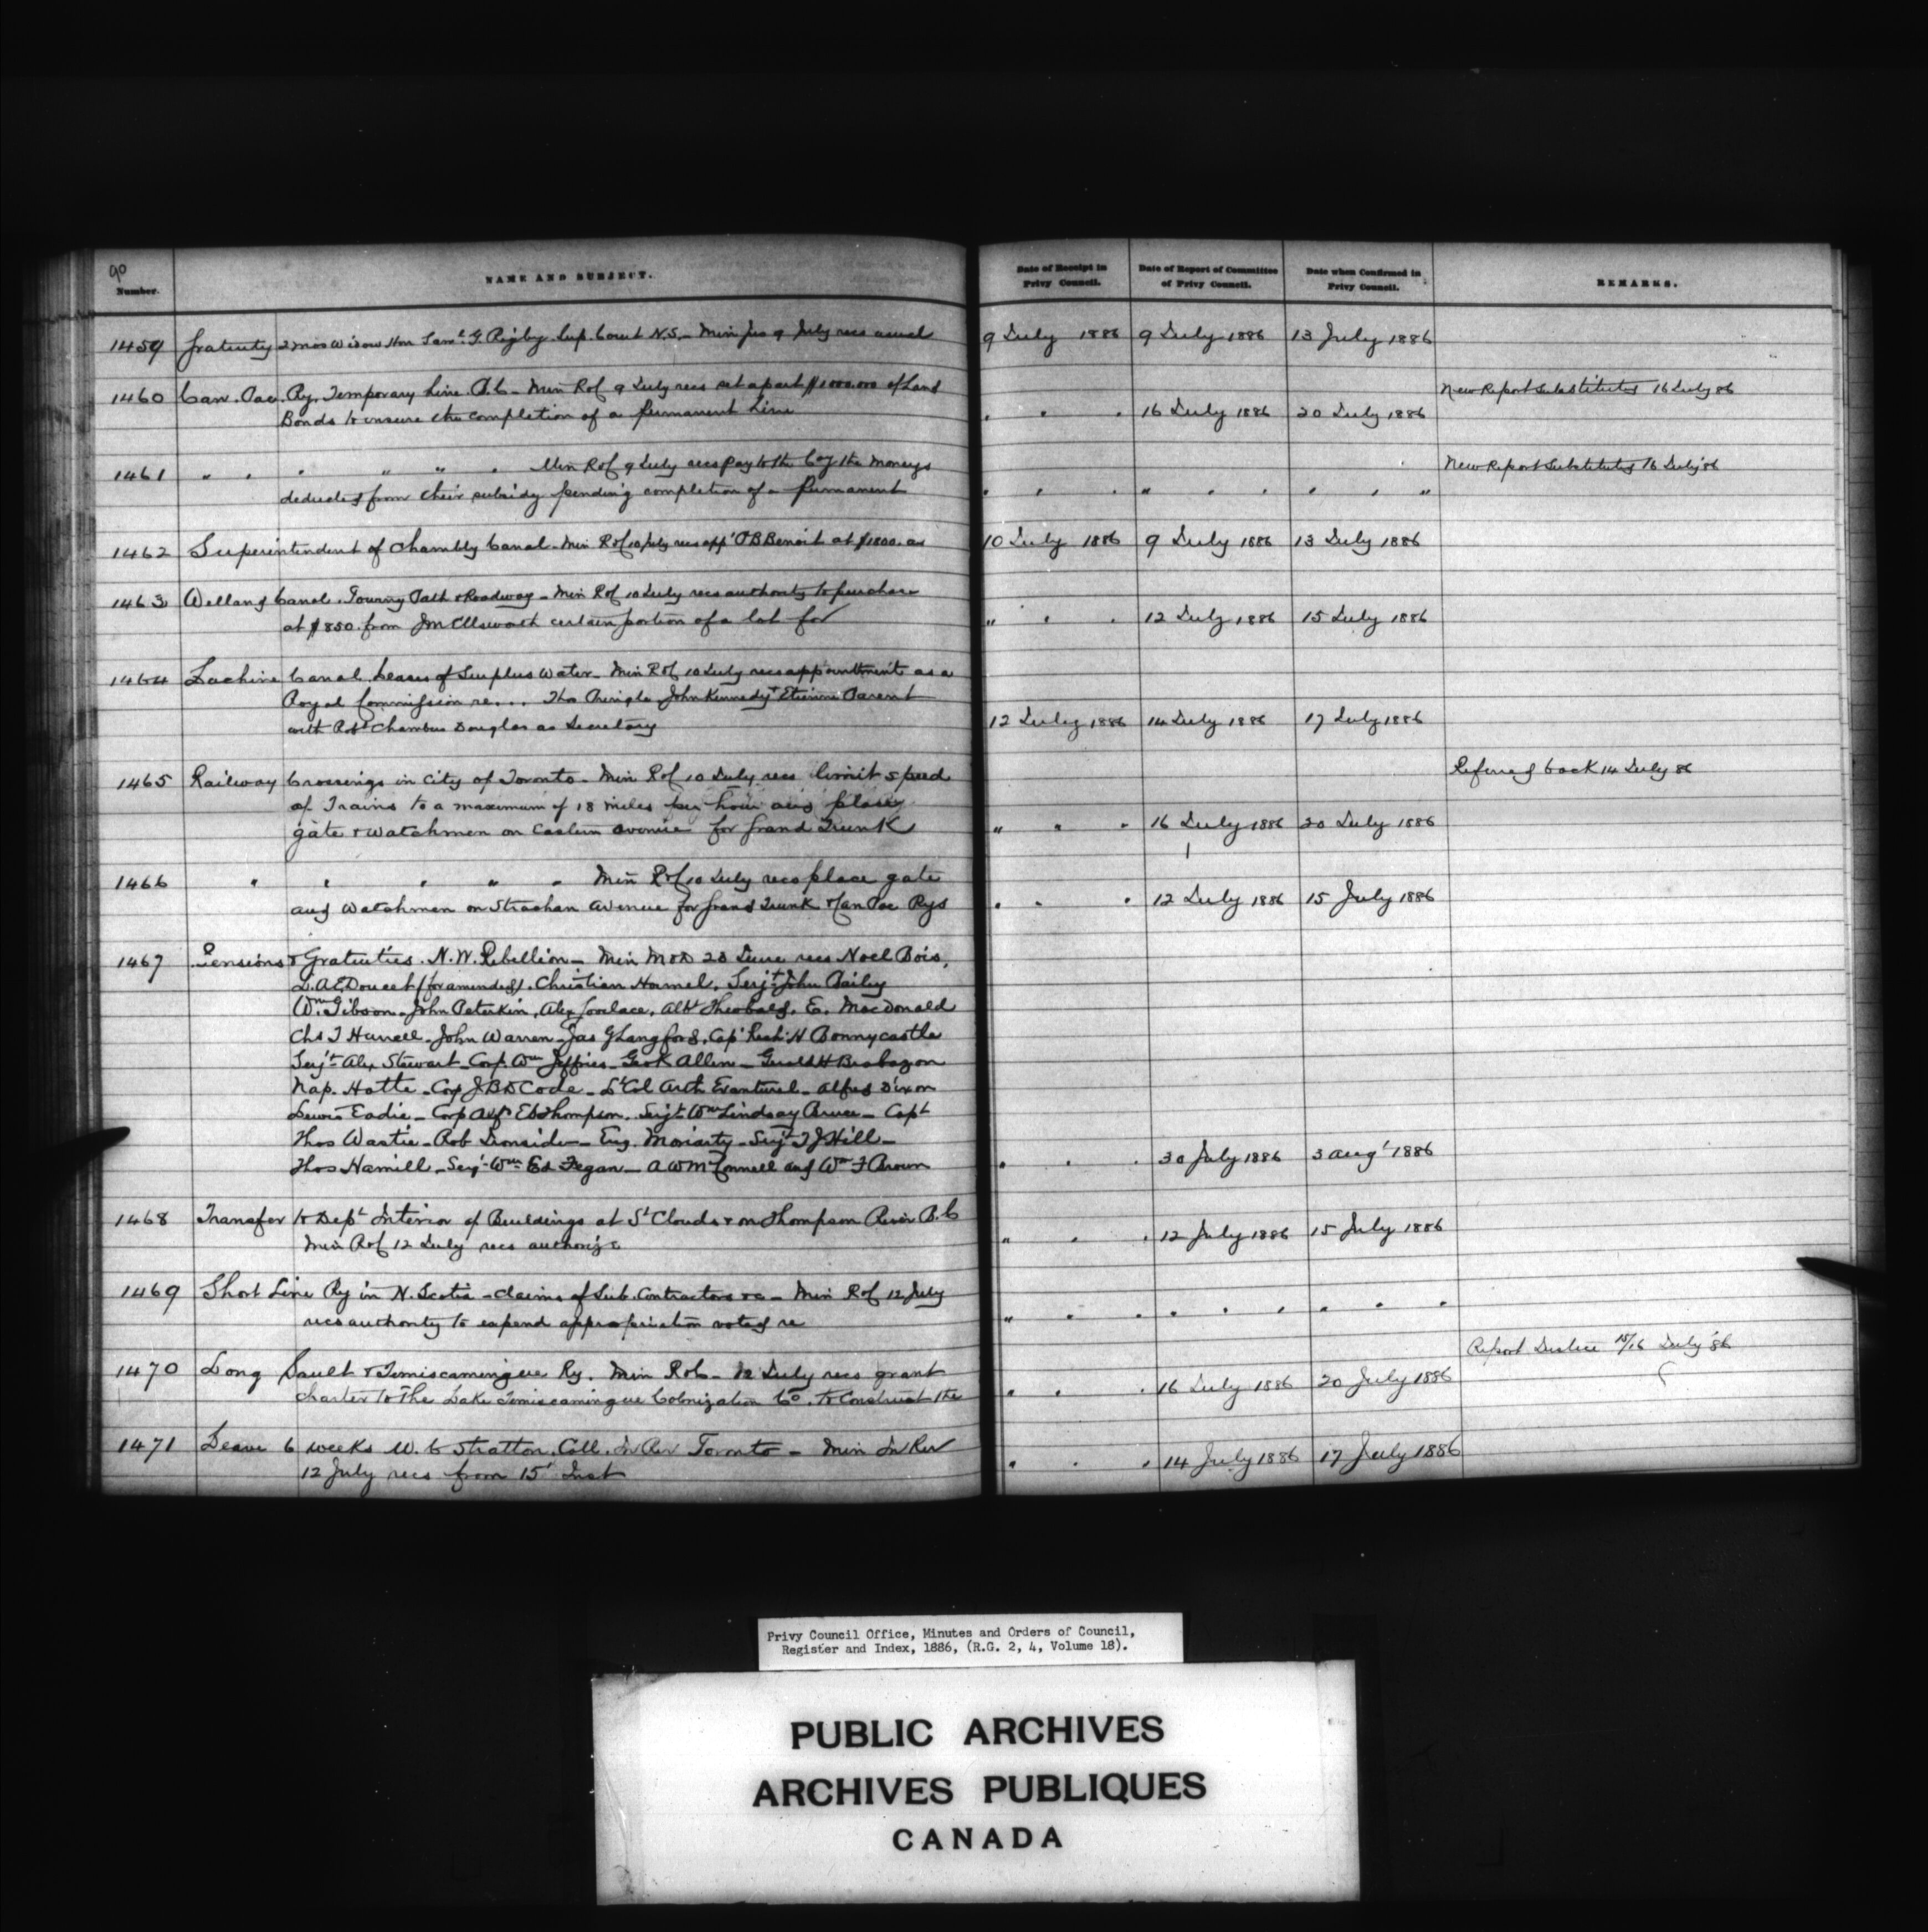 90
Number. NAME AND SUBJECT. Date of Receipt in Privy Council. Date of Report of Committee of Privy Council. Date when Confirmed in Privy Council. REMARKS.
1459 Gratuity 2 mos Widow Hon Saml. G. Rigby Sup. Court N.S. - Min Jus 9 July recs award 9 July 1886 9 July 1886 13 July 1886
1460 Can. Pac. Ry. Temporary Line B.C - Min Rof 9 July recs set apart $1000.000 of Land New Report Substituted 16 July 86
Bonds to insure the completion of a Permanent Line " " " 16 July 1886 20 July 1886
1461 " " " " " " Min Rof 9 July recs pay to the Coy the moneys New Report Substituted 16 July 86
deducted from their subsidy pending completion of a Permanent " " " " " " " " "
1462 Superintendent of Chambly Canal - Min Rof 10 July recs appt P B Benoit at $1800. as 10 July 1886 9 July 1886 13 July 1886
1463 Welland Canal. Towing Path & Roadway - Min Rof 10 July recs authority to purchase
at $850. from Jm Ellsworth certain portion of a lot for " " " 12 July 1886 15 July 1886
1464 Lachine Canal Leases of Surplus Water - Min Rof 10 July recs appointment as a
Royal Commission re... Tho Pringle John Kennedy & Etienne Parent
with Robt Chambers Douglas as Secretary 12 July 1886 14 July 1886 17 July 1886
1465 Railway Crossings in City of Toronto - Min Rof 10 July recs limit speed Referred back 14 July 86
of Trains to a maximum of 18 miles per hour and place
gate & watchmen on Eastern Avenue for Grand Trunk " " " 16 July 1886 20 July 1886
1466 " " " " " Min Rof 10 July recs place gate
and Watchmen on Strachan Avenue for Grand Trunk & Can Pac Rys " " " 12 July 1886 15 July 1886
1467 Pensions & Gratuities. N.W. Rebellion - Min M & D 28 June recs Noel Bois,
L. A E Doucet (for amended). Christian Hamel, Serjt John Bailey
Wm. Gibson - John Peterkin, Alex Lovelace, Albt Theobald, E. MacDonald
Chs T Hurrell - John Warren - Jas G Langford, Capt Rich. H Bonnycastle
Serjt Alex Stewart - Corp. Wm Jeffries - Geo K Allen - Gerald H Brabazon
Nap. Hatte - Corp J B D Code - Lt Col Arth Evanturel - Alfred Dixon
Lewis Eadie - Corp Alfd Ed Thompson. Serjt Wm Lindsay Bruce - Capt
Thos Wastie - Rob Ironside - Eug. Moriarty - Serjt T J Hill -
Thos Hamill - Serjt Wm Ed Fegan - A W McConnell and Wm F Brown " " " 30 July 1886 3 augt 1886
1468 Transfer to Dept Interior of Buildings at St Clouds & on Thompson River B.C
Min Rof 12 July recs authorize " " " 12 July 1886 15 July 1886
1469 Short Line Ry in N. Scotia - Claims of Sub. Contractors &c - Min Rof 12 July
recs authority to expend appropriation voted re " " " " " " " " "
1470 Long Sault & Temiscamingue Ry. Min R of C - 12 July recs grant Report Justice 15/16 July 86
charter to The Lake Temiscamingue Colonization Co. to Construct the " " " 16 July 1886 20 July 1886
1471 Leave 6 weeks W. C Stratton. Coll. In Rev Toronto - Min In Rev
12 July recs from 15t Inst " " " 14 July 1886 17 July 1886
Privy Council Office, Minutes and Orders of Council,
Register and Index, 1886, (R.G. 2, 4, Volume 18).
PUBLIC ARCHIVES
ARCHIVES PUBLIQUES
CANADA